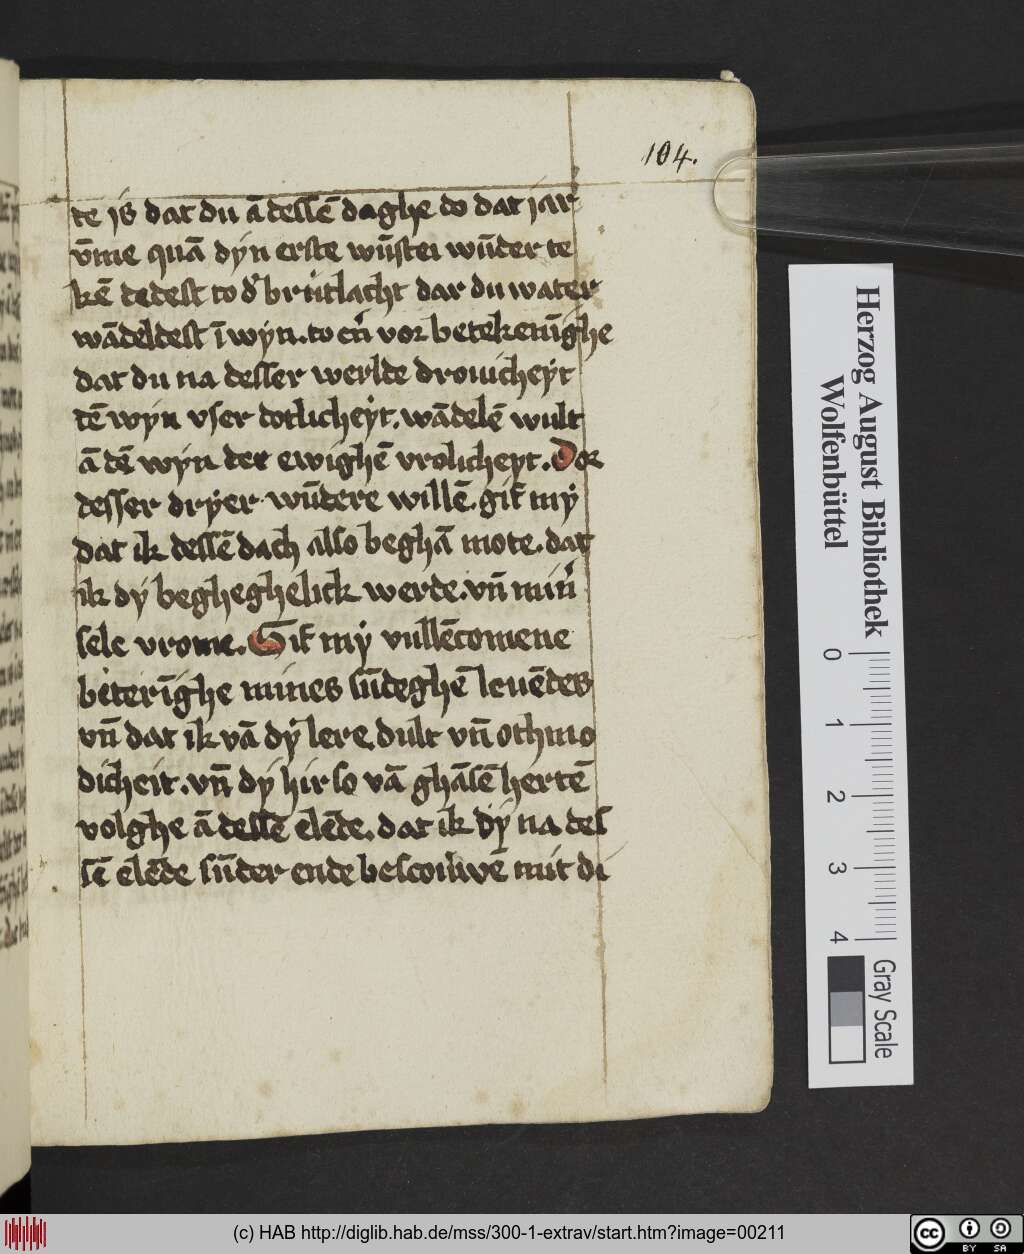 104.
te is dat du ā dessē daghe do dat jar
v̄me quā dẏn erste wūstei wūder te
kē dedest to d' brutlacht dar du water
wādeldest ī wẏn. to en̄ vor betekenīghe
dat du na desser werlde drouicheẏt
tē wẏn vser dotlicheẏt. wādelē wult
ā dē wẏn der ewighē vrolicheẏt. Dor
desser drẏer wūdere willē. gif mẏ
dat ik dessē dach also beghā mote. dat
ik dẏ begheghelick werde. vn̄ min'
sele vrome. Gif mẏ vullēcomene
beterīghe mines sūdeghē leuēdes
vn̄ dat ik vā dẏ lere dult vn̄ othmo
dicheit. vn̄ dẏ hir so vā ghāsē hertē
volghe ā dessē elēde. dat ik dẏ na des
sē elēde sūder ende bescouwē mit di
Herzog August Bibliothek
Wolfenbüttel
0 1 2 3 4
Gray Scale
(c) HAB http://diglib.hab.de/mss/300-1-extrav/start.htm?image=00211
cc BY SA